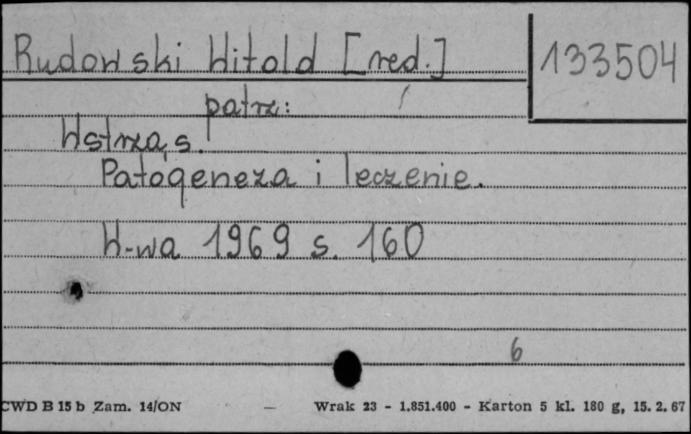 Rudowski Witold [red.]
133504
patrz:
Wstrząs.
Patogeneza i leczenie.
W-wa 1969 s. 160
6
CWD B 15 b Zam. 14/ON — Wrak 23 - 1.851.400 - Karton 5 kl. 180 g, 15. 2. 67